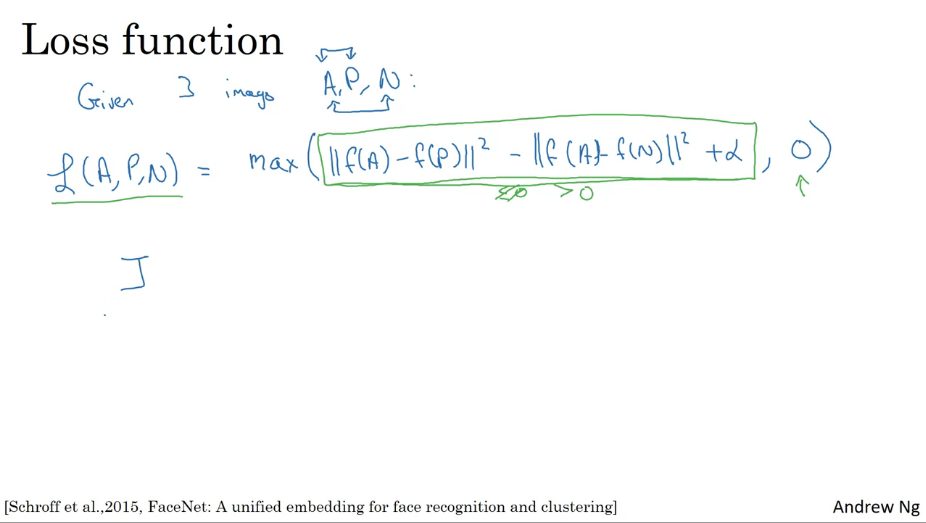 Loss function
Given 3 images A, P, N:
ℒ(A, P, N) = max(||f(A) - f(P)||² - ||f(A) - f(N)||² + α, 0)
> 0
J
[Schroff et al.,2015, FaceNet: A unified embedding for face recognition and clustering]
Andrew Ng